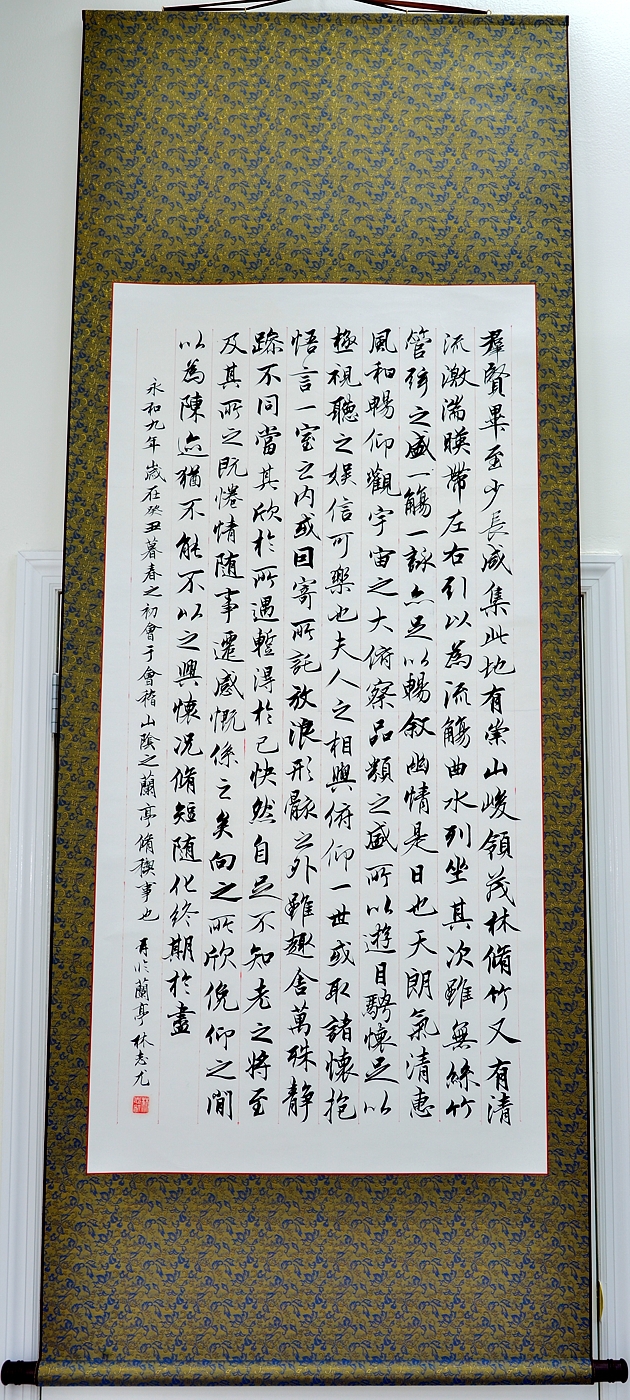 羣賢畢至少長咸集此地有崇山峻領茂林脩竹又有清
流激湍暎帶左右引以為流觴曲水列坐其次雖無絲竹
管弦之盛一觴一詠亦足以暢敘幽情是日也天朗氣清惠
風和暢仰觀宇宙之大俯察品類之盛所以遊目騁懷足以
極視聽之娛信可樂也夫人之相與俯仰一世或取諸懷抱
悟言一室之內或因寄所託放浪形骸之外雖趣舍萬殊靜
躁不同當其欣於所遇蹔得於己快然自足不知老之將至
及其所之既惓情随事遷感慨係之矣向之所欣俛仰之閒
以為陳迹猶不能不以之興懷況脩短随化終期於盡
永和九年歲在癸丑暮春之初會于會稽山陰之蘭亭脩禊事也 於蘭亭 林志尤